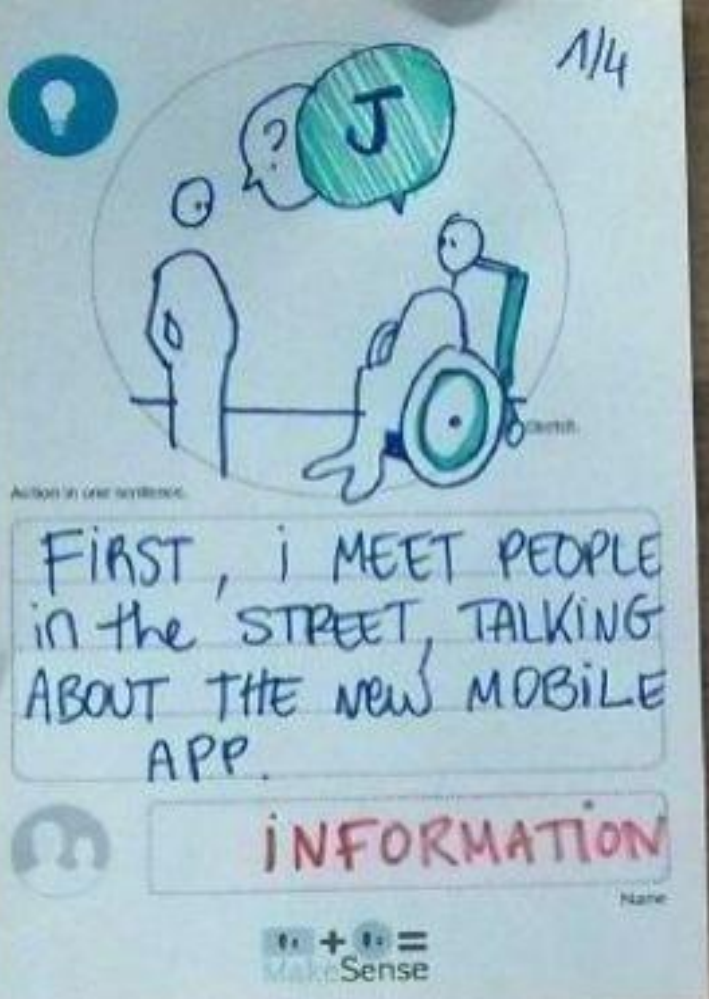 1/4
?
J
Sketch.
Action in one sentence.
FIRST, i MEET PEOPLE
in the STREET, TALKING
ABOUT THE new MOBILE
APP.
iNFORMATiON
Name
+ =
MakeSense